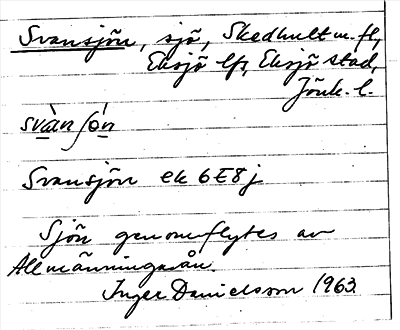 Svansjön, sjö, Skedhult m. fl,
Eksjö lfs, Eksjö stad,
Jönk. l.
svànʃón
Svansjön ek 6E8j
Sjön genomflytes av
Allmänningaån.
Inger Danielsson 1963